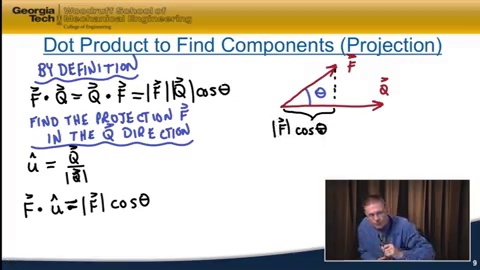 Georgia Tech
Woodruff School of
Mechanical Engineering
College of Engineering
Dot Product to Find Components (Projection)
BY DEFINITION
F⃗ · Q⃗ = Q⃗ · F⃗ = |F⃗||Q⃗| cosθ
FIND THE PROJECTION F⃗
IN THE Q⃗ DIRECTION
û = Q⃗/|Q⃗|
F⃗ · û = |F⃗| cosθ
F⃗
Q⃗
θ
|F⃗| cosθ
9